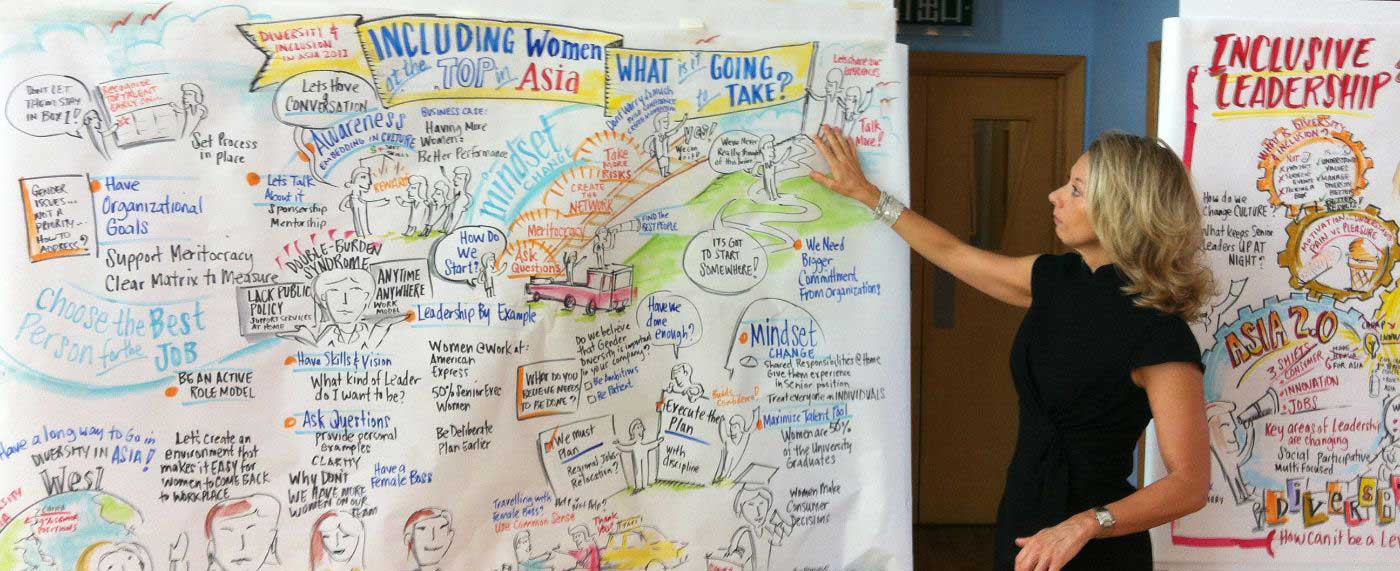 DIVERSITY &
INCLUSION
IN ASIA 2011
INCLUDING Women
at the TOP in Asia
WHAT is it GOING
to TAKE?
DON'T LET
THEM STAY
IN BOX 1!
RECOGNIZE
TOP TALENT
EARLY ON...
Set Process
in place
Lets Have
a
CONVERSATION
Awareness
EMBEDDING IN CULTURE
REWARD
BUSINESS CASE:
Having More
Women =
Better Performance
mindset
CHANGE
TAKE
MORE
RISKS
CREATE THE
NETWORK
Meritocracy
Ask
Questions
YES!
We can
do it!
We've Never
Really thought
of this before
Let's share our
EXPERIENCES
Talk
More!
GENDER
ISSUES...
NOT A
PRIORITY...
HOW TO
ADDRESS?
Have
Organizational
Goals
Support Meritocracy
Clear Matrix to Measure
Lets Talk
About it
Sponsorship
Mentorship
DOUBLE-BURDEN
SYNDROME
LACK PUBLIC
POLICY
SUPPORT SERVICES
AT HOME
ANYTIME
ANYWHERE
WORK
MODEL
How Do
We
Start?
FIND THE
BEST PEOPLE
IT'S GOT
TO START
SOMEWHERE!
We Need
Bigger
Commitment
From Organizations
choose the Best
Person for the
JOB
BE AN ACTIVE
ROLE MODEL
Leadership By Example
Have Skills & Vision
What kind of Leader
do I want to be?
Ask Questions
provide personal
examples
CLARITY
Women @ Work at:
American
Express
50% Senior Exec
Women
Be Deliberate
Plan Earlier
Have we
done
enough?
Do we believe
that Gender
Diversity is important
in your company?
Be Ambitious
Be Patient
WHAT DO YOU
BELIEVE NEEDS
TO BE DONE?
Mindset
CHANGE
Shared Responsibilities @ Home
Give them experience
in Senior position
Treat everyone as INDIVIDUALS
Builds
Confidence!
Execute the
Plan
with
discipline
Maximize Talent Pool
Women are 50%
of the University
Graduates
We must
Plan
Regional Jobs?
Relocation?
Have a long way to Go in
DIVERSITY in ASIA!
West
Let's create an
environment that
makes it EASY for
women to COME BACK
to WORKPLACE
Why DON'T
WE HAVE MORE
WOMEN ON OUR
TEAM
Have a
Female Boss
Travelling with
Female Boss?
Use Common Sense
Thank
You!
TAXI
Women Make
Consumer
Decisions
INCLUSIVE
LEADERSHIP
How do we
Change CULTURE?
What keeps Senior
Leaders UP AT
NIGHT?
PAIN vs PLEASURE
ASIA 2.0
3 SHIFTS
CONSUMER
INNOVATION
JOBS
Key areas of Leadership
are changing
Social Participative
Multi Focused
DIVERS
How can it be a Le